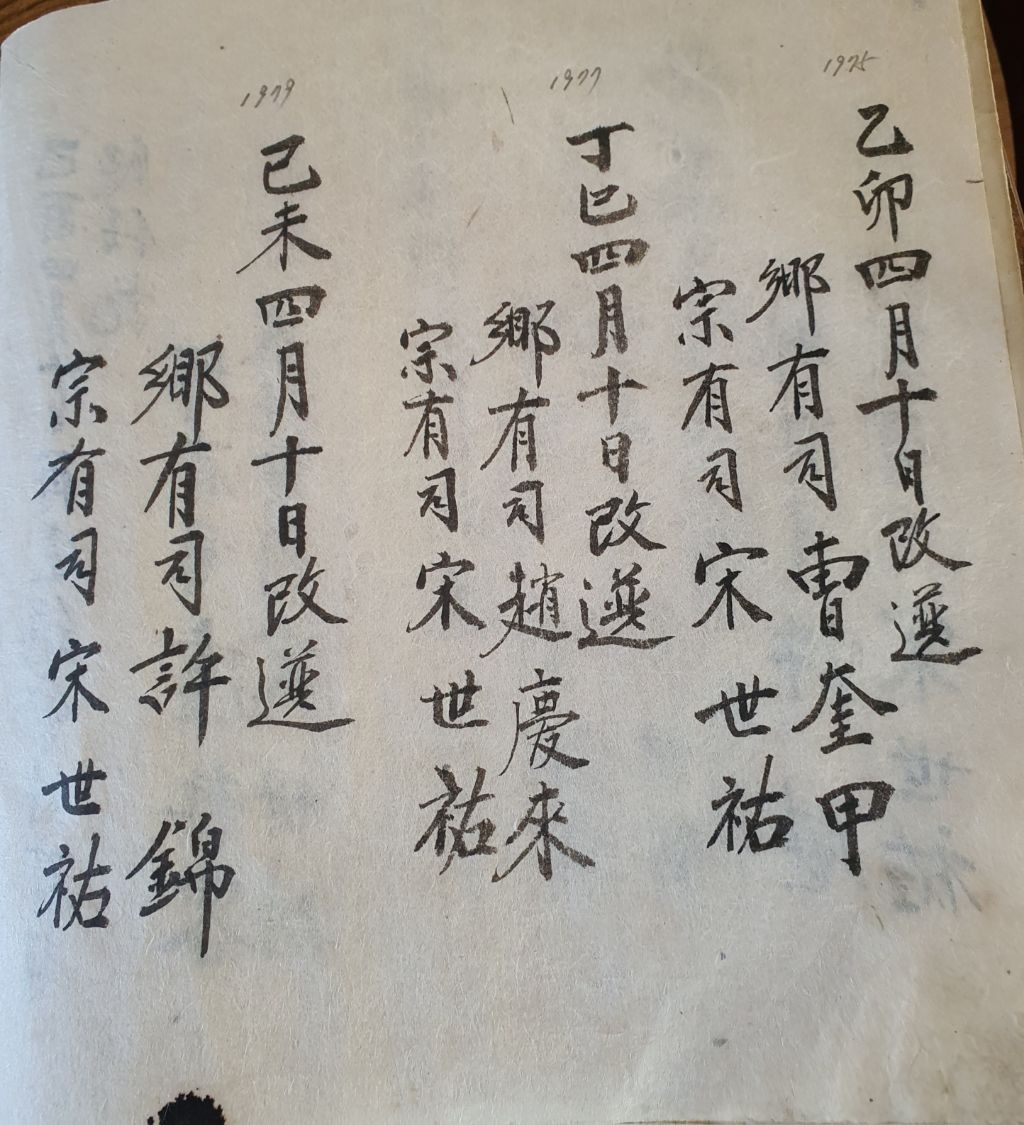 1975
乙卯四月十日改選
鄕有司曺奎甲
宗有司宋世祐
1977
丁巳四月十日改選
鄕有司趙慶來
宗有司宋世祐
1979
己未四月十日改選
鄕有司許錦
宗有司宋世祐